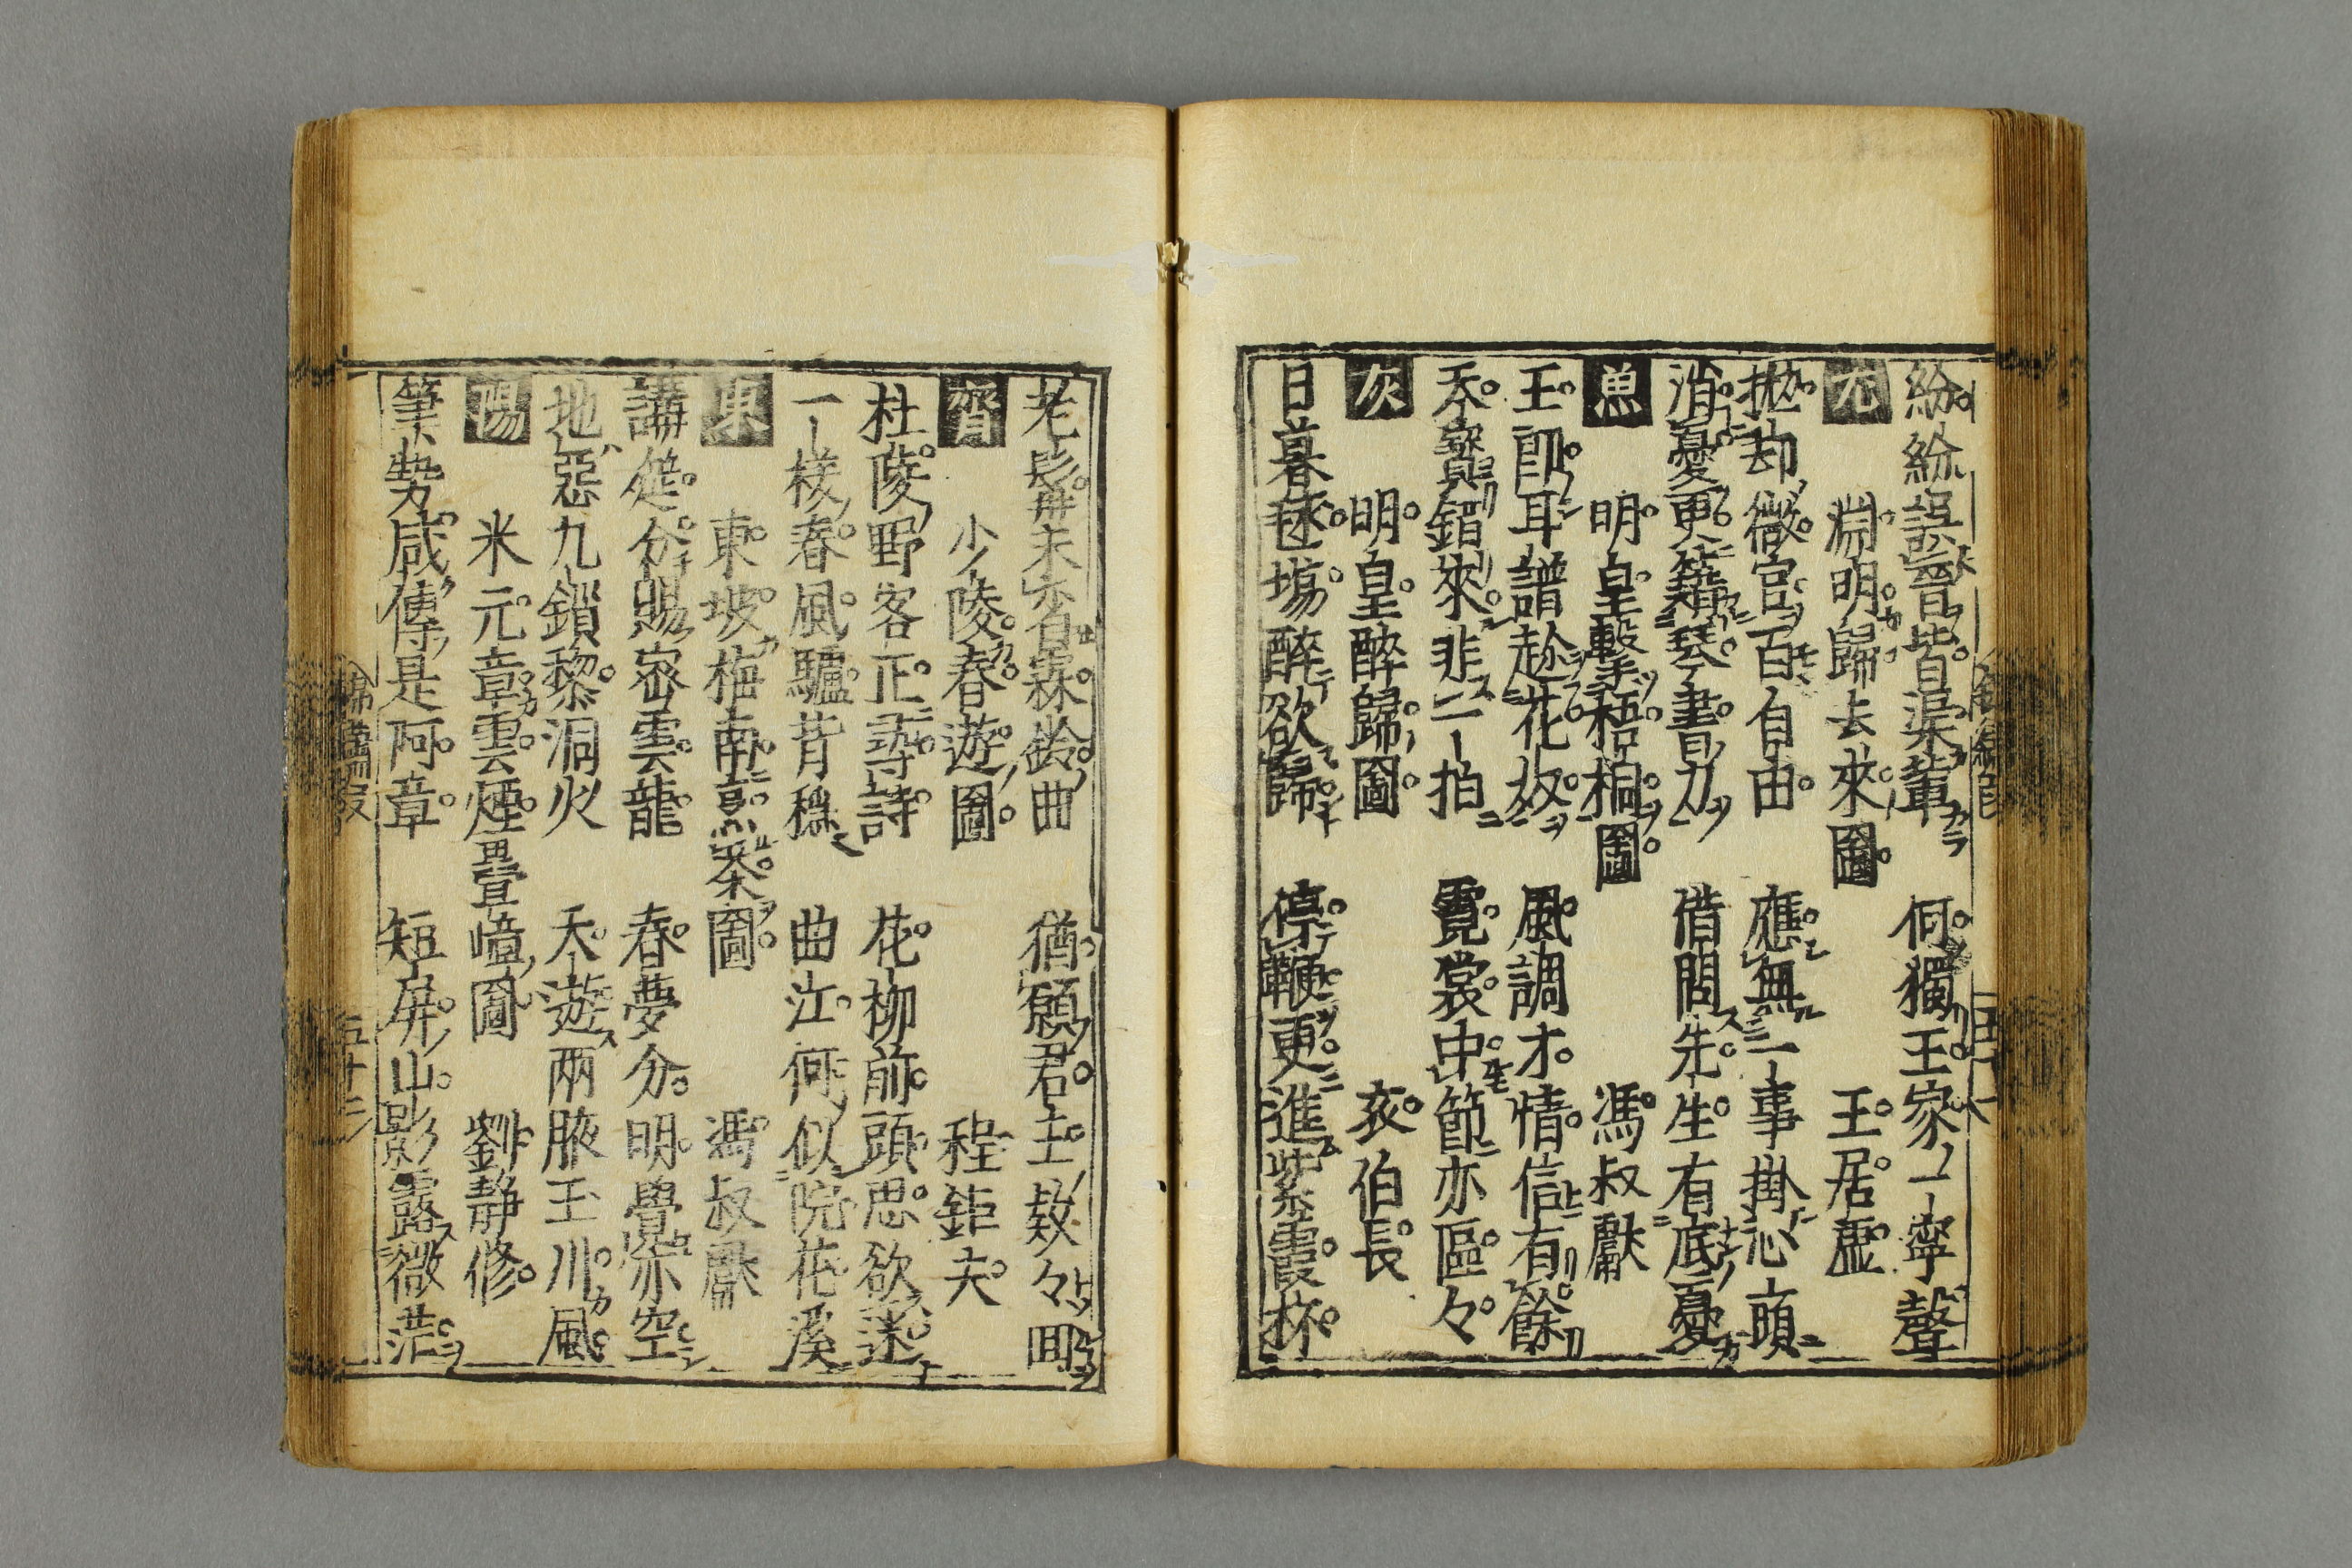 紛紛誤晉皆渠輩 何獨王家一寧馨
元 淵明歸去來圖 王居虛
拋却微官百自由 應無一事掛心頭
消憂更籍琴書力 借問先生有底憂
魚 明皇擊梧桐圖 馮叔獻
玉 耳譜趁花奴 風調才情信有餘
天寶錯來非一拍 霓裳中節亦區々
灰 明皇醉歸圖 亥伯長
日暮毬場醉欲歸 停鞭更進紫霞杯
老髯未省霖鈴曲 猶願君王數々回
齊 少陵春遊圖 程鉅夫
杜陵野客正尋詩 花柳前頭思欲迷
一樣春風驢背穩 曲江何似院花溪
東 東坡梅南烹茶圖 馮叔獻
講筵分賜密雲龍 春夢分明覺亦空
地惡九鎖黎洞火 天遊兩腋玉川風
陽 米元章雲煙疊嶂圖 劉靜修
筆勢咸傳是阿章 短屏山影露微茫
五十二